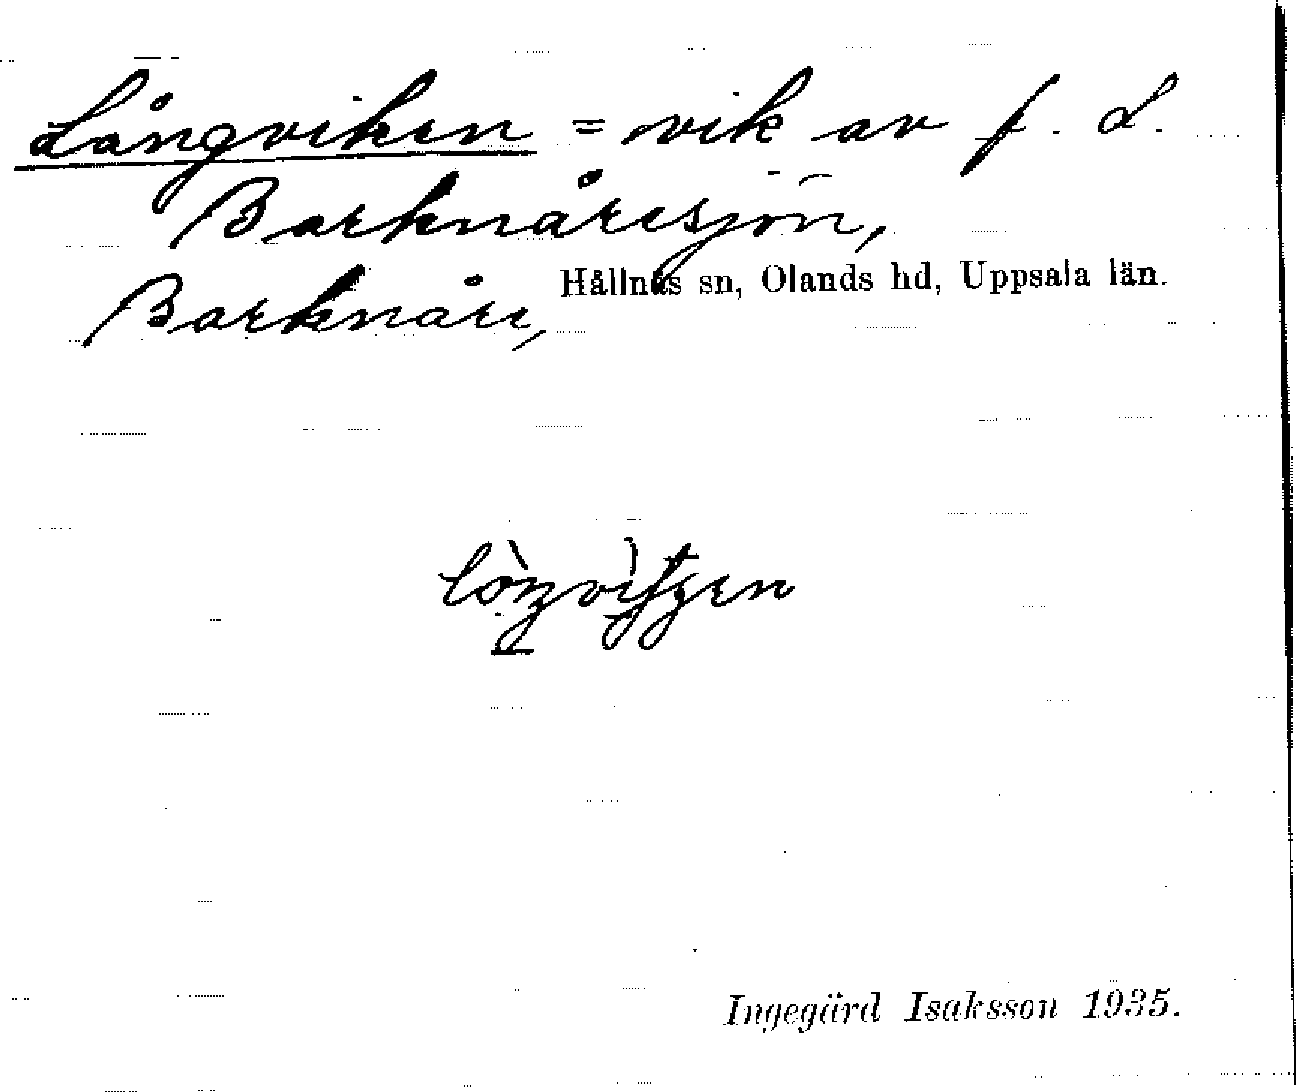 Långviken = vik av f. d.
Barknåresjön,
Barknåre, Hållnäs sn, Olands hd, Uppsala län.
Ingegärd Isaksson 1935.